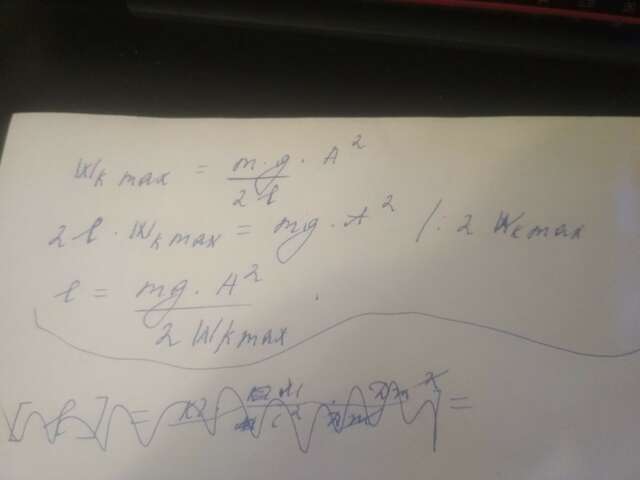 Wk max = m·g/2l · A²
2l · Wk max = mg · A² /: 2 Wk max
l = mg · A²/2 Wk max .
[l] = =